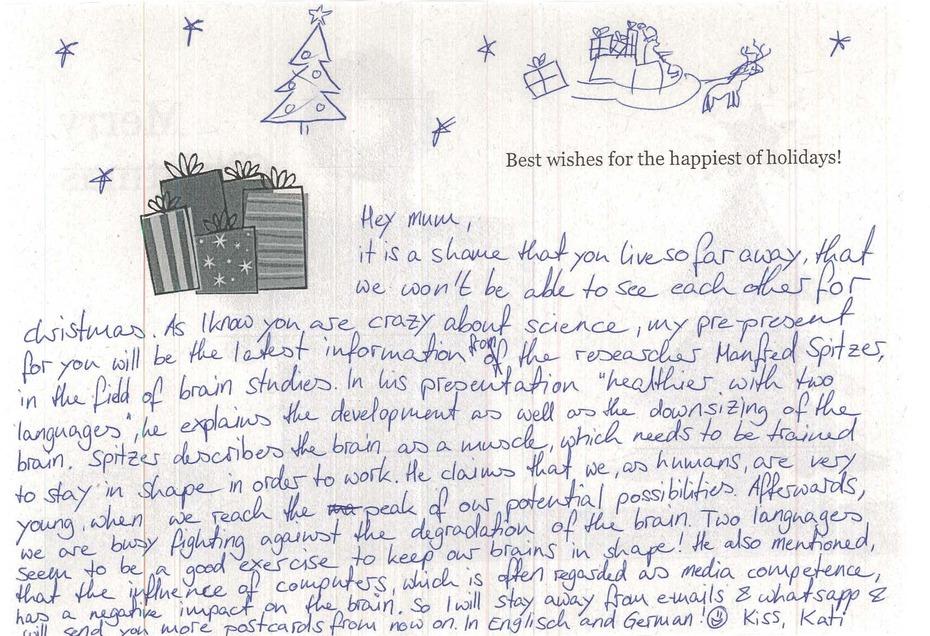 Best wishes for the happiest of holidays!
Hey mum,
it is a shame that you live so far away, that
we won't be able to see each other for
christmas. As I know you are crazy about science, my pre-present
for you will be the latest information from the researcher Manfred Spitzer,
in the field of brain studies. In his presentation "healthier with two
languages", he explains the development as well as the downsizing of the
brain. Spitzer describes the brain as a muscle, which needs to be trained
to stay in shape in order to work. He claims that, we, as humans, are very
young, when we reach the peak of our potential possibilities. Afterwards,
we are busy fighting against the degradation of the brain. Two languages
seem to be a good exercise to keep our brains in shape! He also mentioned,
that the influence of computers, which is often regarded as media competence,
has a negative impact on the brain. So I will stay away from emails & whatsapp &
will send you more postcards from now on. In Englisch and German! ☺ Kiss, Kati